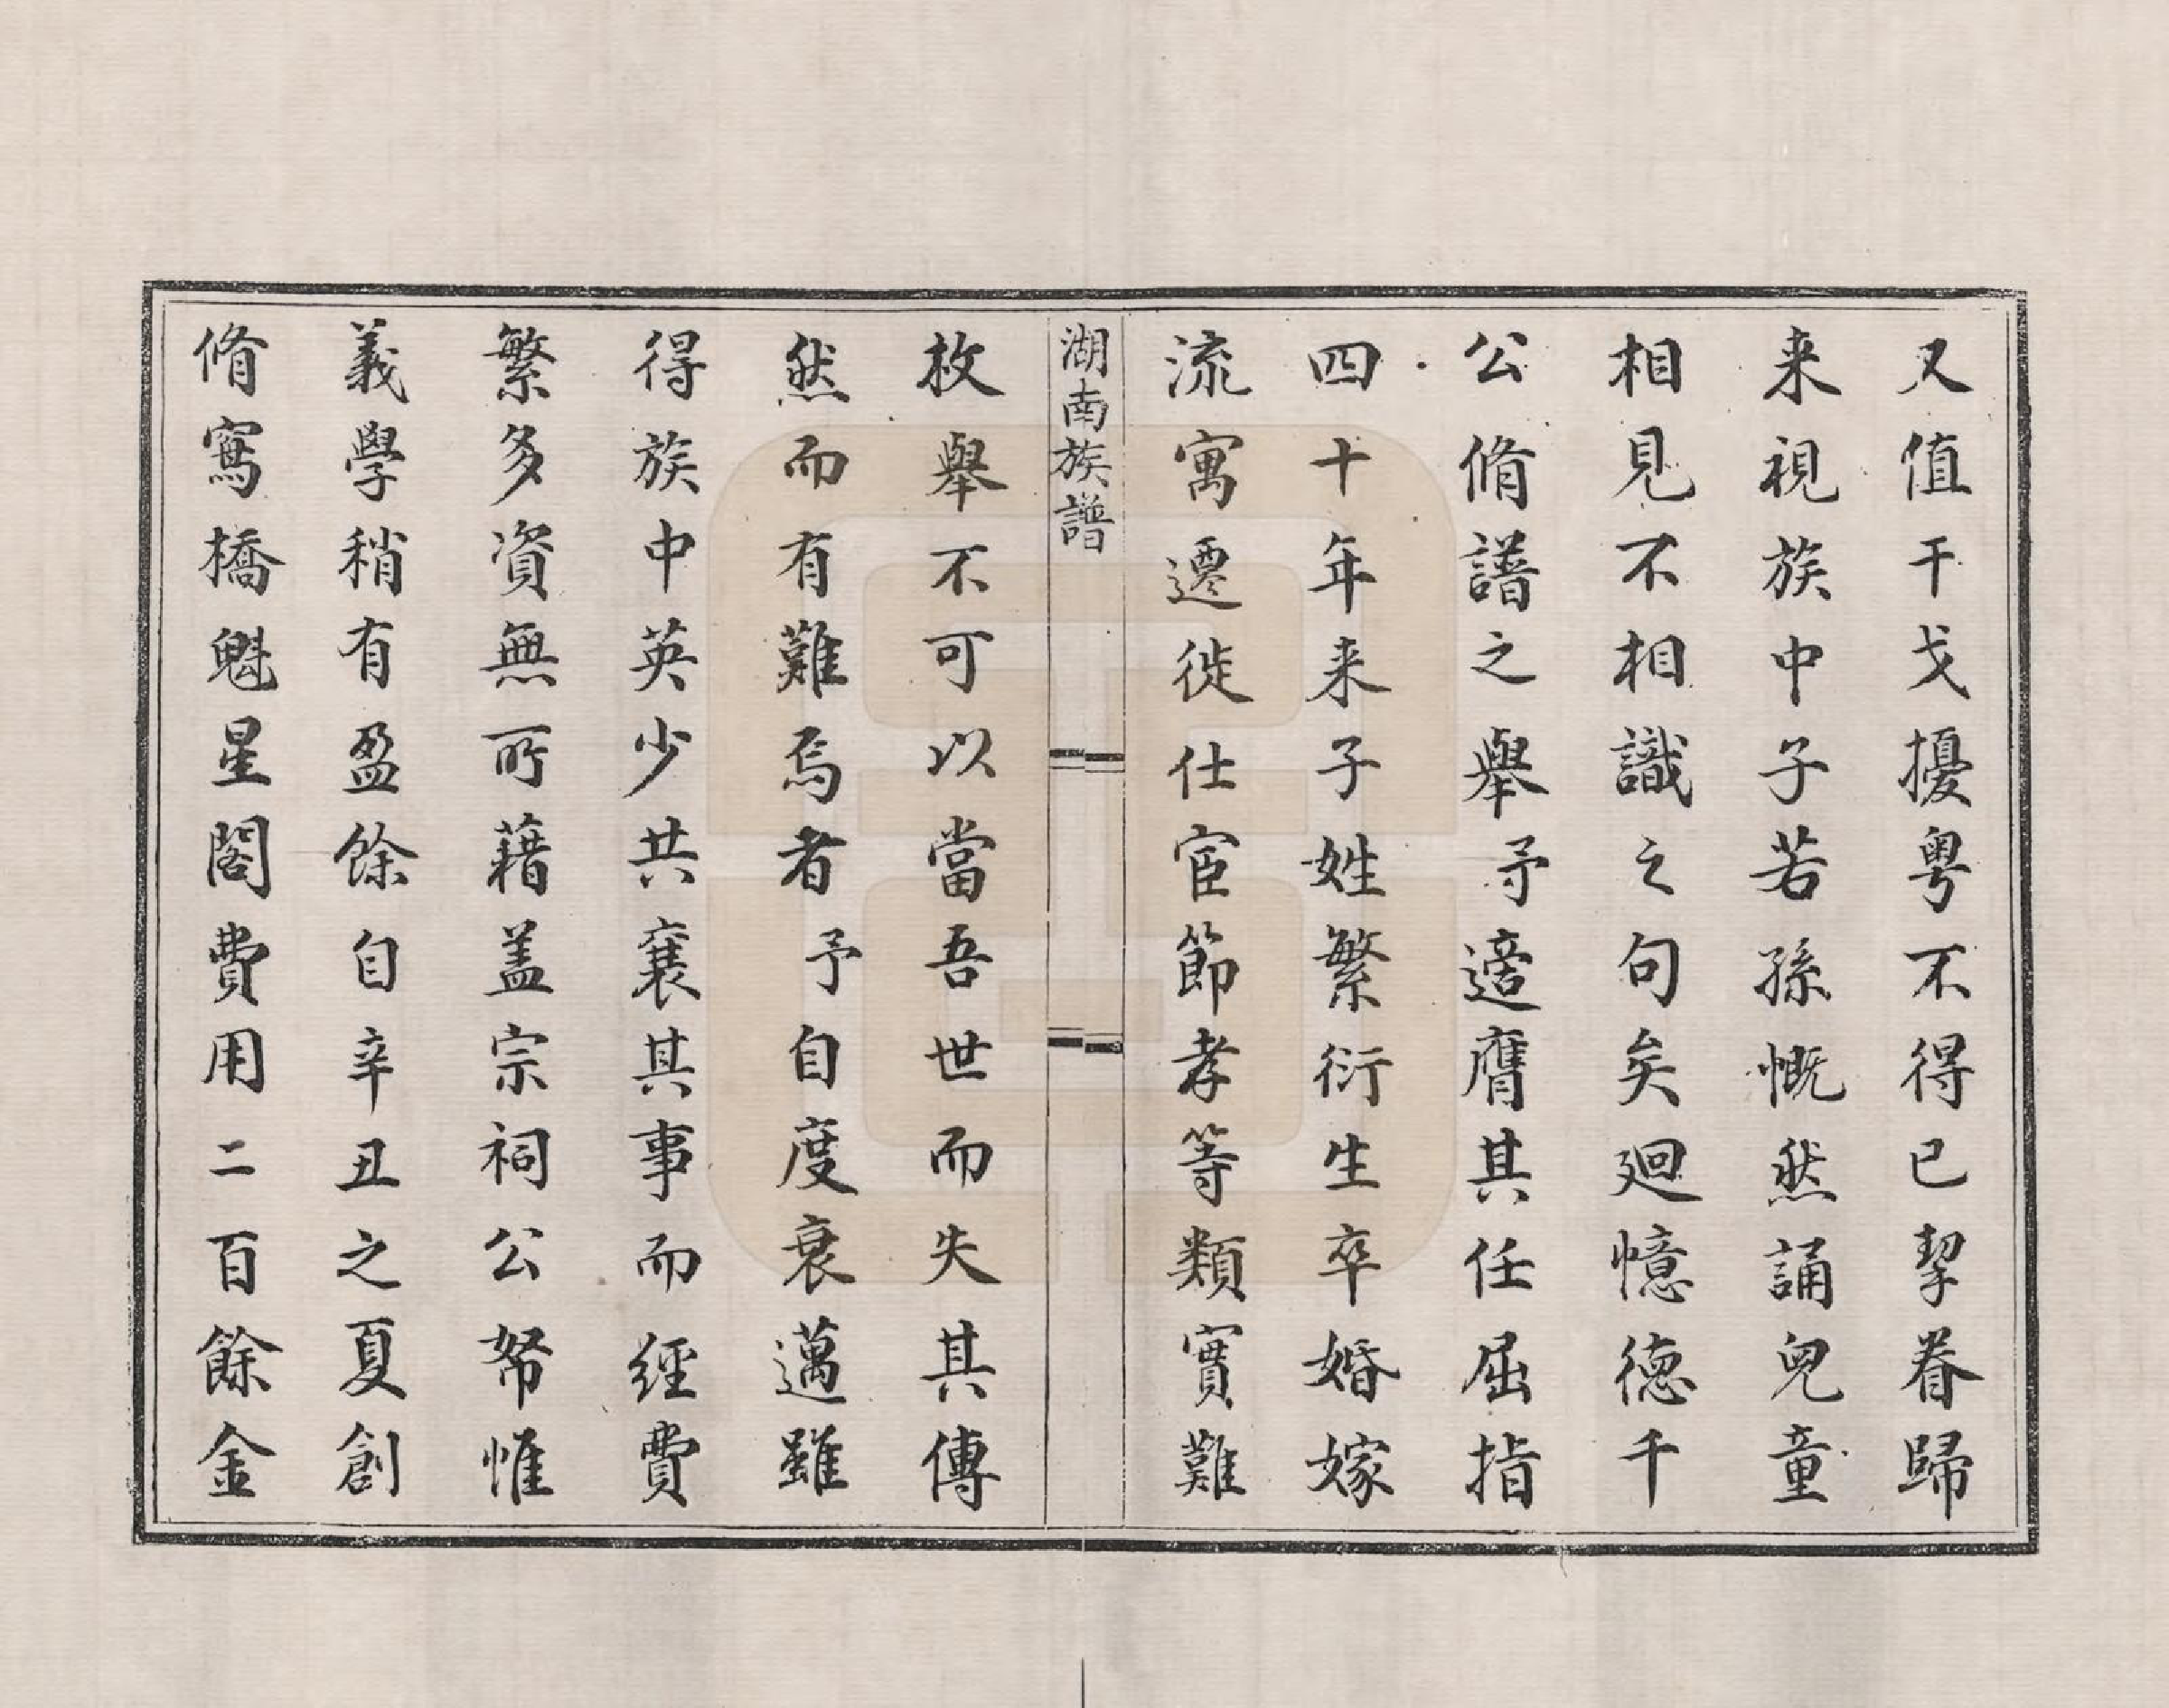 又值干戈擾粤不得已挈眷歸
来視族中子若孫慨然誦兒童
相見不相識之句矣廻憶德千
公脩譜之舉予適膺其任屈指
四十年来子姓繁衍生卒婚嫁
流寓遷徙仕宦節孝等類實難
湖南族譜
枚舉不可以當吾世而失其傳
然而有難焉者予自度衰邁雖
得族中英少共襄其事而經費
繁多資無所藉盖宗祠公帑惟
義學稍有盈餘自辛丑之夏創
脩寫橋魁星閣費用二百餘金